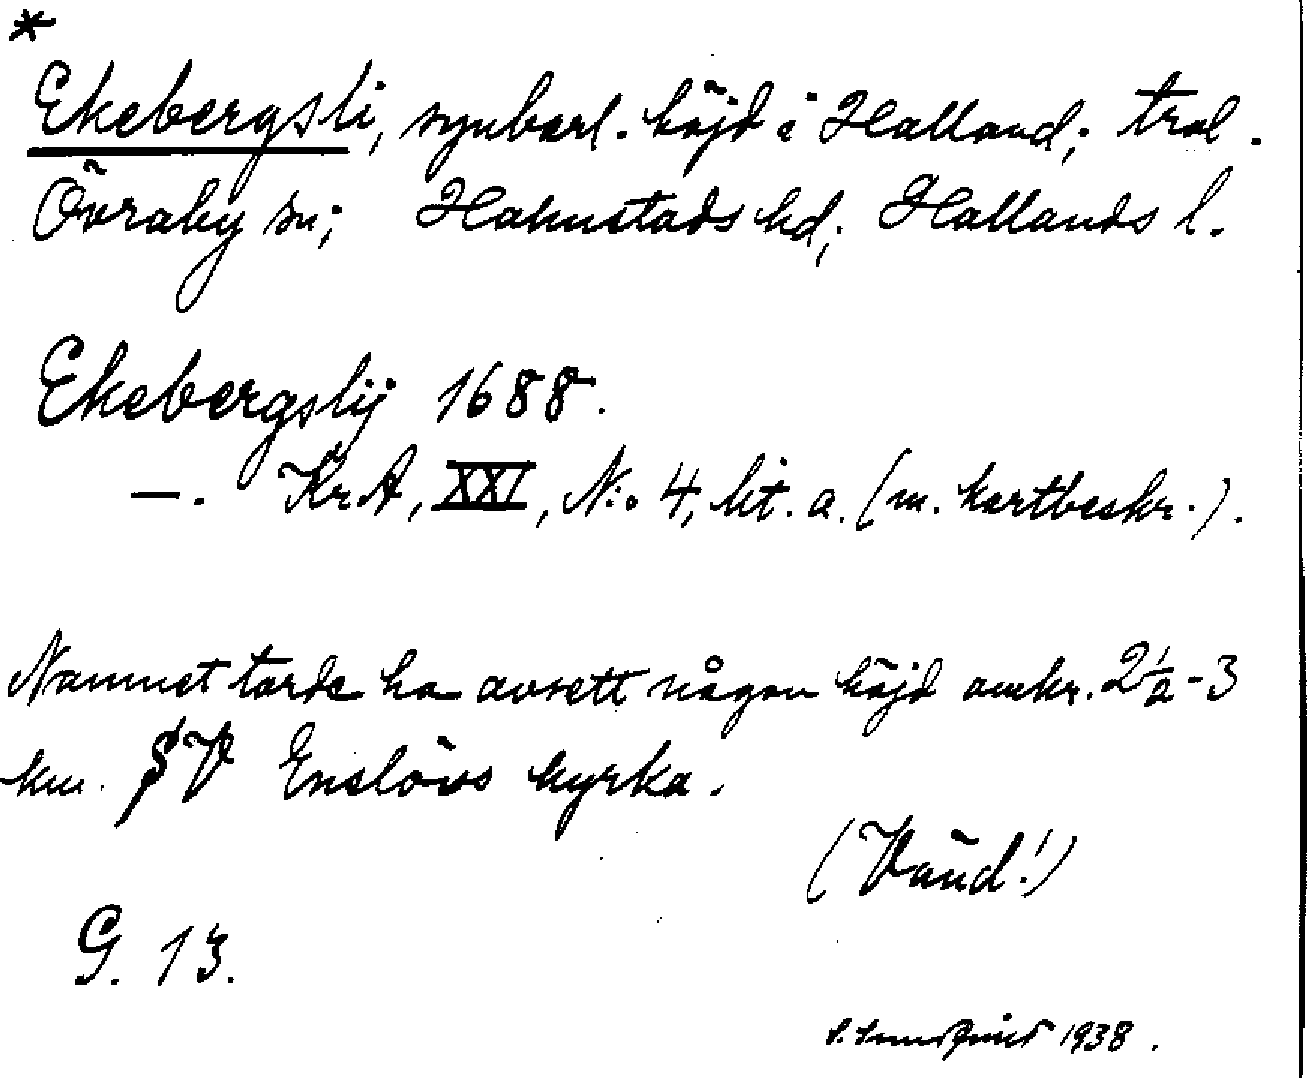 *
Ekebergsli, synbarl. höjd i Halland; trol.
Övraby sn; Halmstads hd; Hallands l.
Ekebergslij 1688.
—. KrA, XXI, N:o 4, lit. a. (m. kartbeskr.).
Namnet torde ha avsett någon höjd omkr. 2½-3
km. SV Enslövs kyrka.
(Vänd!)
G. 13.
S. Sundquist 1938.